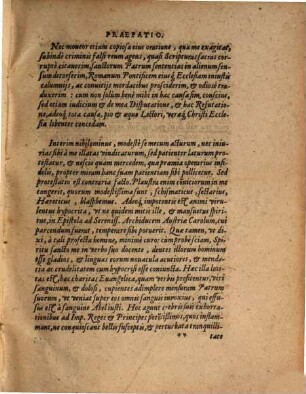 PRAEFATIO.
Nec moueor etiam copiosa eius oratione, qua me exagitat,
subinde criminis falsi reum agens, quasi Scripturas sacras corru-
perē citauerim, sanctorum Patrum sententias in alienum sen-
sum detorserim, Romanum Pontificem eiusq́; Ecclesiam iniustis
calumnijs, ac conuitijs mordacibus prosciderim, & odiosè tra-
duxerim: cum non solum bene mihi in hac causa sim conscius,
sed etiam iudicium & de mea Disputatione, & hac Refutatio-
ne, adeoq́; tota causa, pio & æquo Lectori, veræq́; Christi Ecclesiæ
libenter concedam.
Interim nihilominus, modestè se mecum acturum, nec in-
iurias sibi à me illatas vindicaturum, sed patienter laturum pro-
testatur, & nescio quam mercedem, qua præmia operarius infi-
delis, propter miram hanc suam patientiam sibi pollicetur. Sed
protestatio est contraria facto. Plaustra enim conuiciorum in me
congerit, quorum modestissima, Schismaticus, sectarius,
Hæreticus, blasphemus. Adeoq́; impotentis est animi viru-
lentus hypocrita, vt ne quidem mitis ille, & mansuetus spiri-
tus, in Epistola ad Sereniss. Archiducem Austriæ Carolum, cui
parcendum fuerat, temperare sibi potuerit. Quæ tamen, vt di-
xi, à tali profecta homine, minimè curo: cum probè sciam, Spi-
ritu sancto me in verbo suo docente, dentes illorum hominum
esse gladios, & linguas eorum nouacula acutiores, & menda-
cia ac crudelitatem cum hypocrisi esse coniuncta. Hac illi lenitas
est, hac charitas Euangelica, quam verbis profitentur, viri
sanguinum, & dolosi, cupientes adimplere mensuram Patrum
suorum, vt veniat super eos omnis sanguis innoxius, qui effu-
sus est, à sanguine Abel iusti. Hoc agunt crebris suis exhorta-
tionibus ad Imp. Reges & Principes potentissimos, quos instam-
mant, ne conquiescant bellis susceptis, & perturbata tranquilli-
** tate